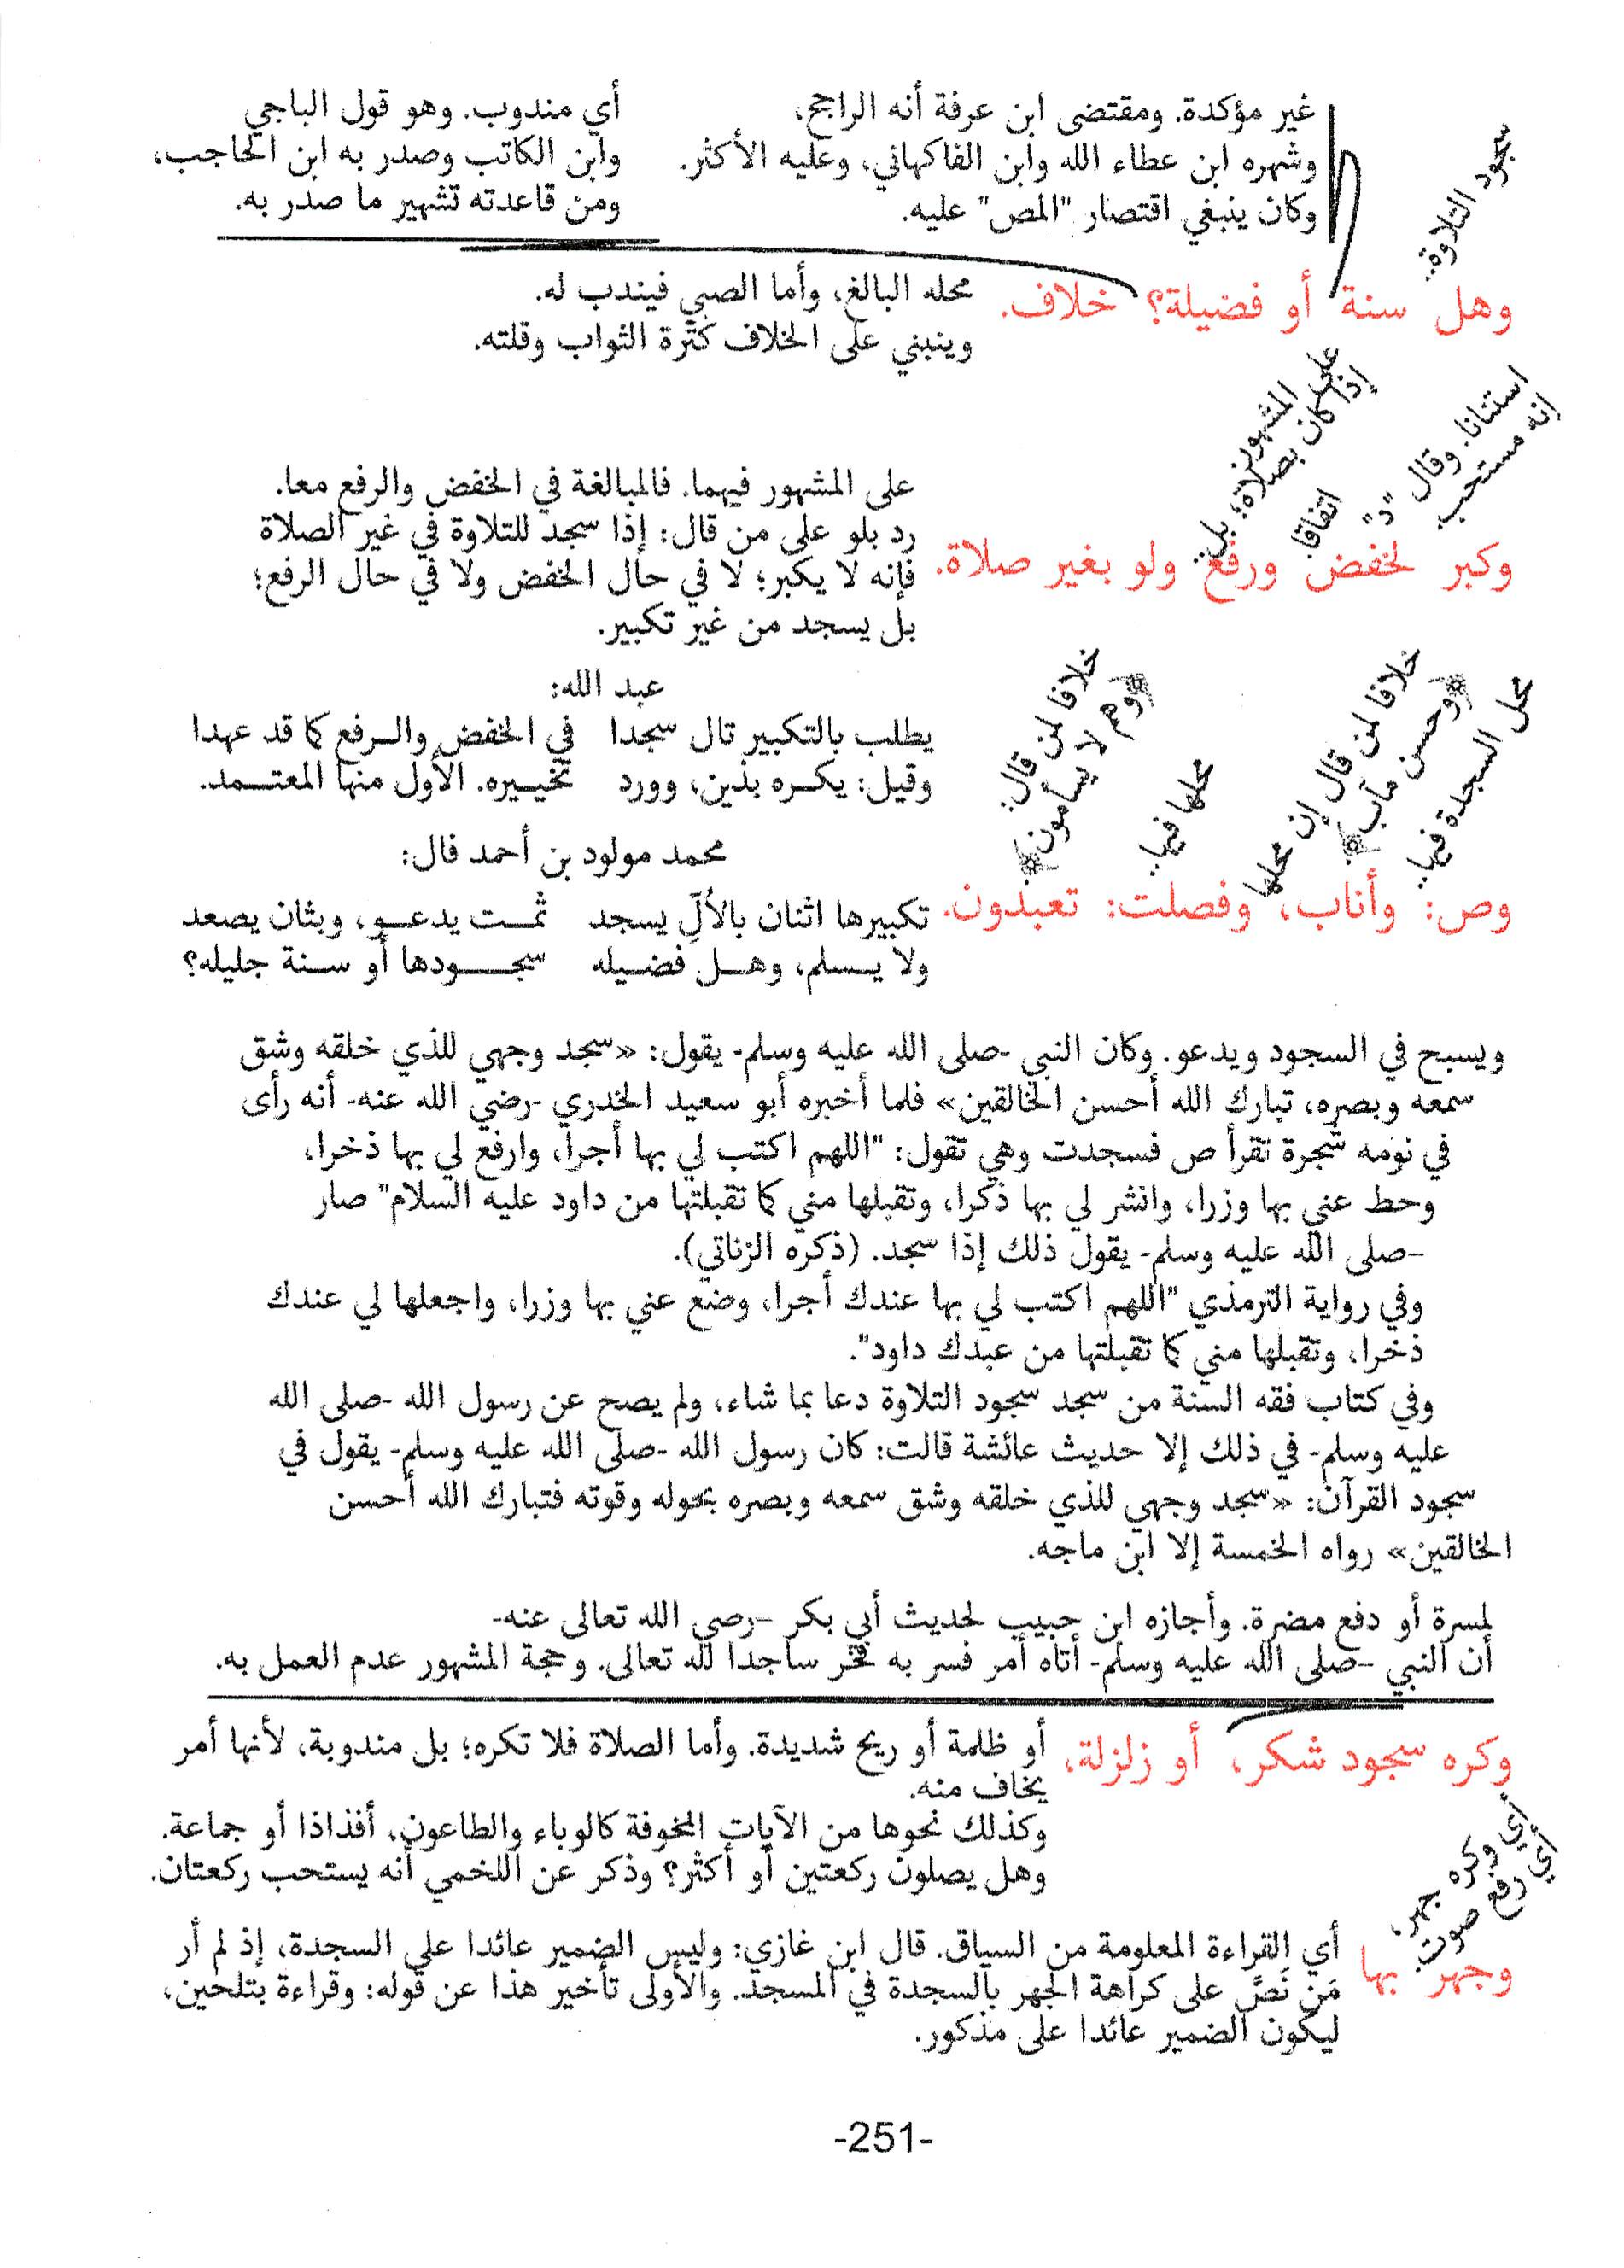 غير مؤكدة. ومقتضى ابن عرفة أنه الراجح،
وشهره ابن عطاء الله وابن الفاكهاني، وعليه الأكثر.
وكان ينبغي اقتصار "المص" عليه.
أي مندوب. وهو قول الباجي
وابن الكاتب وصدر به ابن الحاجب،
ومن قاعدته تشهير ما صدر به.
سجود التلاوة..
وهل سنة أو فضيلة؟ خلاف.
محله البالغ، وأما الصبي فيندب له.
وينبني على الخلاف كثرة الثواب وقلته.
استنانا. وقال "د"
إنه مستحب
اتفاقا.
على المشهور.
إذا كان بصلاة؛ بل..
وكبر لخفض ورفع ولو بغير صلاة.
على المشهور فيهما. فالمبالغة في الخفض والرفع معا.
رد بلو على من قال: إذا سجد للتلاوة في غير الصلاة
فإنه لا يكبر؛ لا في حال الخفض ولا في حال الرفع؛
بل يسجد من غير تكبير.
عبد الله:
يطلب بالتكبير تال سجدا في الخفض والرفع كما قد عهدا
وقيل: يكره بذين، وورد تخييره. الأول منها المعتمد.
محمد مولود بن أحمد فال:
محل السجدة فيها..
خلافا لمن قال إن محلها
﴿وحسن مآب﴾
محلها فيها..
خلافا لمن قال:
﴿وهم لا يسأمون﴾.
وص: وأناب، وفصلت: تعبدون.
تكبيرها اثنان بالأُلِّ يسجد ثمت يدعو، وبثان يصعد
ولا يسلم، وهل فضيله سجودها أو سنة جليله؟
ويسبح في السجود ويدعو. وكان النبي -صلى الله عليه وسلم- يقول: «سجد وجهي للذي خلقه وشق
سمعه وبصره، تبارك الله أحسن الخالقين» فلما أخبره أبو سعيد الخدري -رضي الله عنه- أنه رأى
في نومه شجرة تقرأ ص فسجدت وهي تقول: "اللهم اكتب لي بها أجرا، وارفع لي بها ذخرا،
وحط عني بها وزرا، وانشر لي بها ذكرا، وتقبلها مني كما تقبلتها من داود عليه السلام" صار
–صلى الله عليه وسلم- يقول ذلك إذا سجد. (ذكره الزناتي).
وفي رواية الترمذي "اللهم اكتب لي بها عندك أجرا، وضع عني بها وزرا، واجعلها لي عندك
ذخرا، وتقبلها مني كما تقبلتها من عبدك داود".
وفي كتاب فقه السنة من سجد سجود التلاوة دعا بما شاء، ولم يصح عن رسول الله -صلى الله
عليه وسلم- في ذلك إلا حديث عائشة قالت: كان رسول الله -صلى الله عليه وسلم- يقول في
سجود القرآن: «سجد وجهي للذي خلقه وشق سمعه وبصره بحوله وقوته فتبارك الله أحسن
الخالقين» رواه الخمسة إلا ابن ماجه.
لمسرة أو دفع مضرة. وأجازه ابن حبيب لحديث أبي بكر –رضي الله تعالى عنه-
أن النبي –صلى الله عليه وسلم- أتاه أمر فسر به فخر ساجدا لله تعالى. وحجة المشهور عدم العمل به.
وكره سجود شكر، أو زلزلة،
أو ظلمة أو ريح شديدة. وأما الصلاة فلا تكره؛ بل مندوبة، لأنها أمر
يخاف منه.
وكذلك نحوها من الآيات المخوفة كالوباء والطاعون، أفذاذا أو جماعة.
وهل يصلون ركعتين أو أكثر؟ وذكر عن اللخمي أنه يستحب ركعتان.
أي وكره جهر،
أي رفع صوت.
وجهر بها
أي القراءة المعلومة من السياق. قال ابن غازي: وليس الضمير عائدا على السجدة، إذ لم أر
مَن نَصَّ على كراهة الجهر بالسجدة في المسجد. والأولى تأخير هذا عن قوله: وقراءة بتلحين،
ليكون الضمير عائدا على مذكور.
-251-